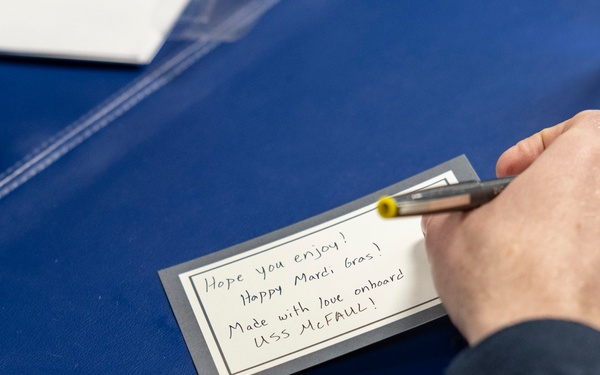 Hope you enjoy!
Happy Mardi Gras!
Made with love onboard
USS McFAUL!